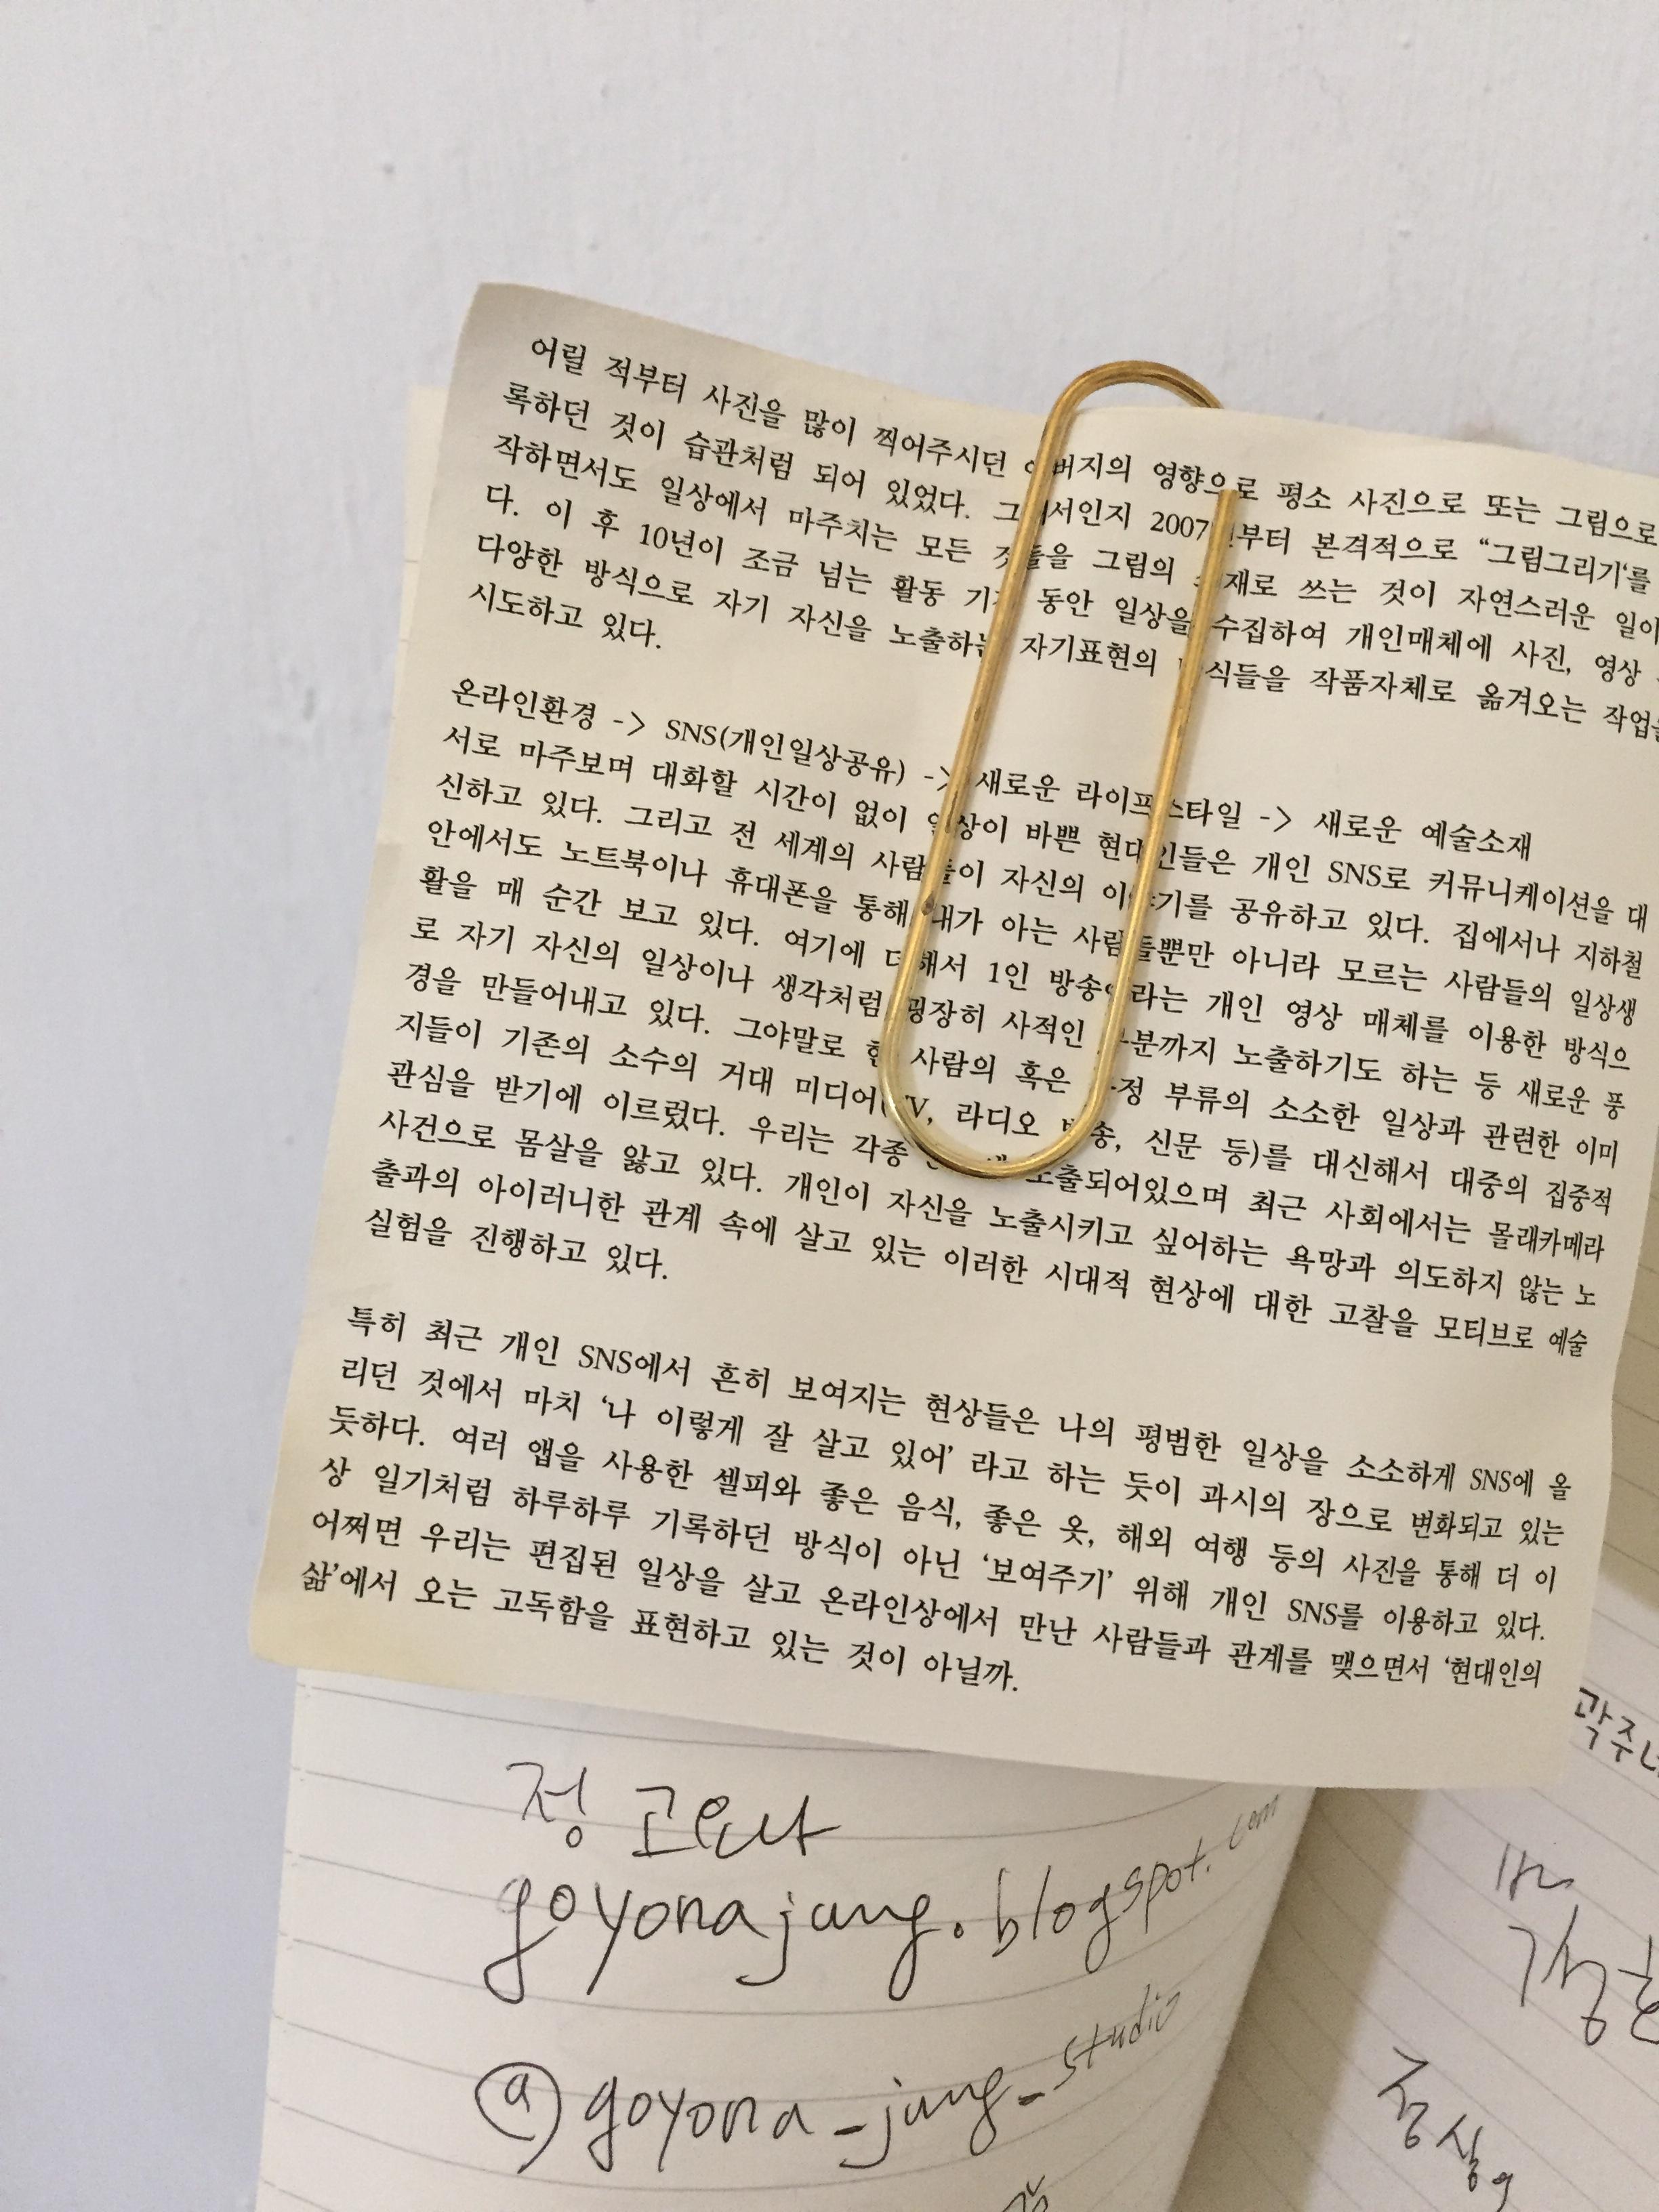 어릴 적부터 사진을 많이 찍어주시던 아버지의 영향으로 평소 사진으로 또는 그림으로
록하던 것이 습관처럼 되어 있었다. 그래서인지 2007년부터 본격적으로 “그림그리기‘를
작하면서도 일상에서 마주치는 모든 것들을 그림의 소재로 쓰는 것이 자연스러운 일이
다. 이 후 10년이 조금 넘는 활동 기간 동안 일상을 수집하여 개인매체에 사진, 영상
다양한 방식으로 자기 자신을 노출하는 자기표현의 방식들을 작품자체로 옮겨오는 작업을
시도하고 있다.
온라인환경 -> SNS(개인일상공유) -> 새로운 라이프스타일 -> 새로운 예술소재
서로 마주보며 대화할 시간이 없이 일상이 바쁜 현대인들은 개인 SNS로 커뮤니케이션을 대
신하고 있다. 그리고 전 세계의 사람들이 자신의 이야기를 공유하고 있다. 집에서나 지하철
안에서도 노트북이나 휴대폰을 통해 내가 아는 사람들뿐만 아니라 모르는 사람들의 일상생
활을 매 순간 보고 있다. 여기에 더해서 1인 방송이라는 개인 영상 매체를 이용한 방식으
로 자기 자신의 일상이나 생각처럼 굉장히 사적인 부분까지 노출하기도 하는 등 새로운 풍
경을 만들어내고 있다. 그야말로 한 사람의 혹은 특정 부류의 소소한 일상과 관련한 이미
지들이 기존의 소수의 거대 미디어(TV, 라디오 방송, 신문 등)를 대신해서 대중의 집중적
관심을 받기에 이르렀다. 우리는 각종 노출되어있으며 최근 사회에서는 몰래카메라
사건으로 몸살을 앓고 있다. 개인이 자신을 노출시키고 싶어하는 욕망과 의도하지 않는 노
출과의 아이러니한 관계 속에 살고 있는 이러한 시대적 현상에 대한 고찰을 모티브로 예술
실험을 진행하고 있다.
특히 최근 개인 SNS에서 흔히 보여지는 현상들은 나의 평범한 일상을 소소하게 SNS에 올
리던 것에서 마치 ‘나 이렇게 잘 살고 있어’ 라고 하는 듯이 과시의 장으로 변화되고 있는
듯하다. 여러 앱을 사용한 셀피와 좋은 음식, 좋은 옷, 해외 여행 등의 사진을 통해 더 이
상 일기처럼 하루하루 기록하던 방식이 아닌 ‘보여주기’ 위해 개인 SNS를 이용하고 있다.
어쩌면 우리는 편집된 일상을 살고 온라인상에서 만난 사람들과 관계를 맺으면서 ‘현대인의
삶’에서 오는 고독함을 표현하고 있는 것이 아닐까.
정 고요나
goyonajung.blogspot.com
@goyona_jung_studio